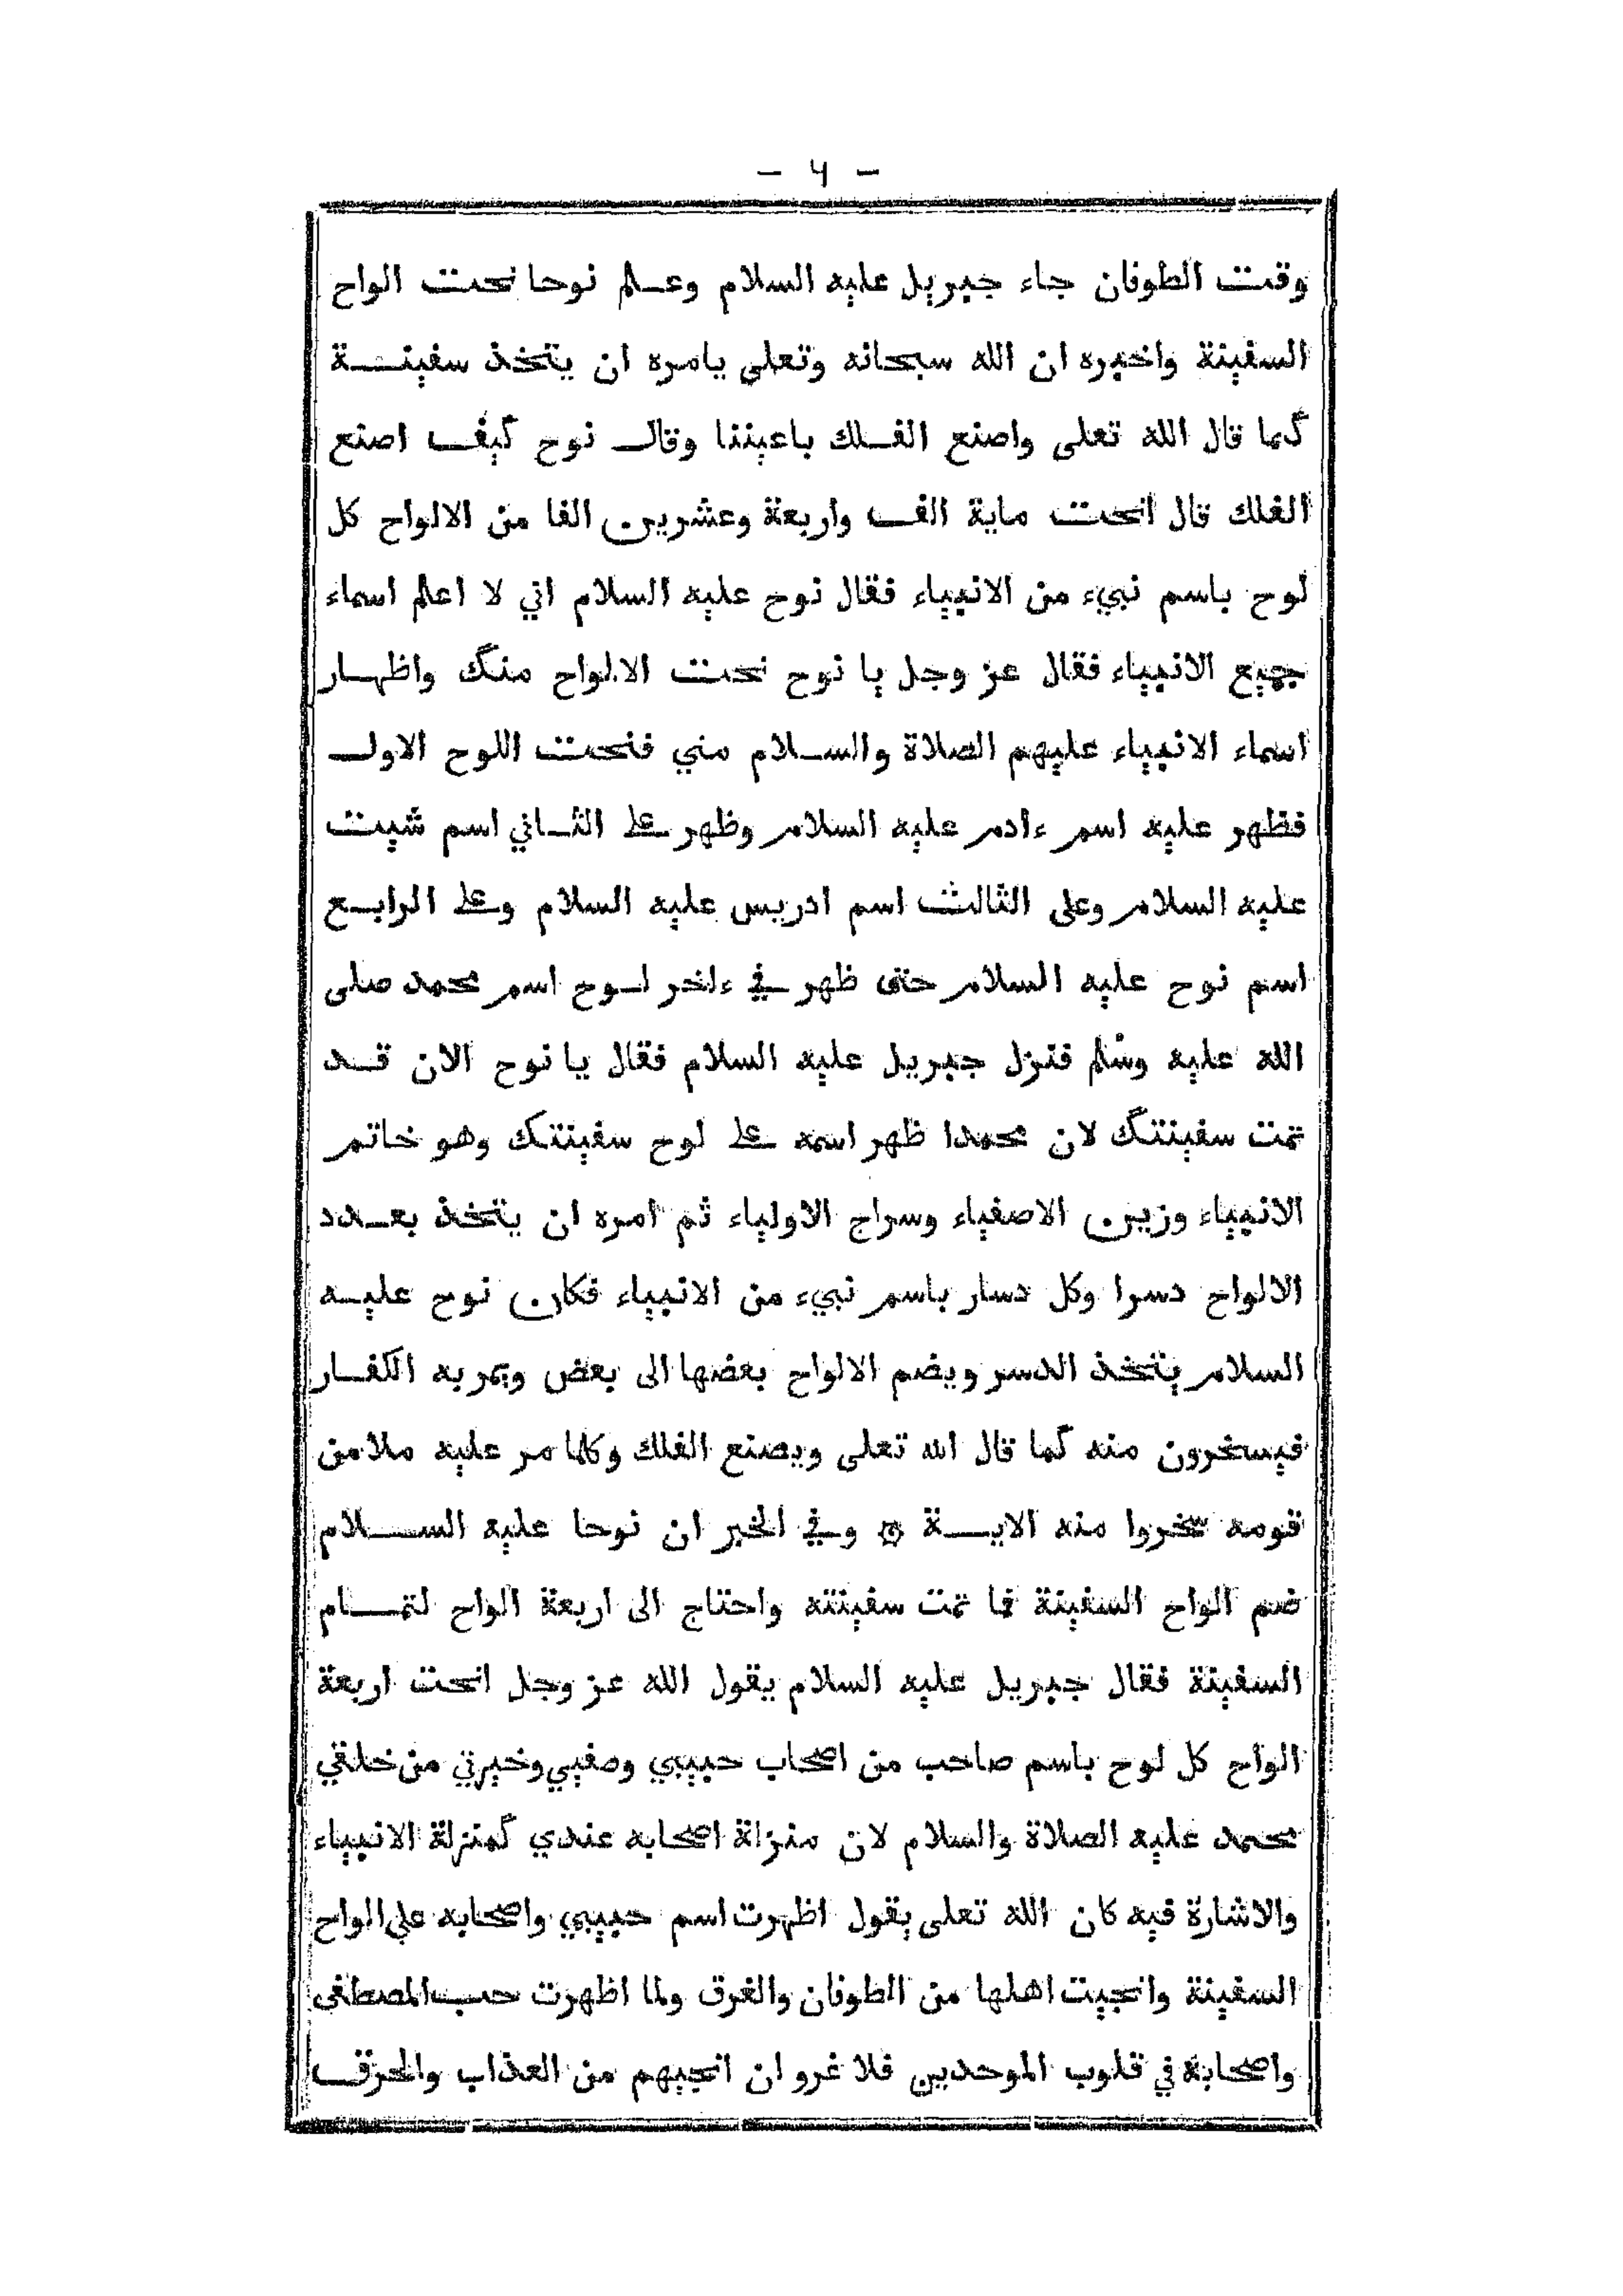 - ٦ -
وقت الطوفان جاء جبريل عليه السلام وعلم نوحا نحت الواح
السفينة واخبره ان الله سبحانه وتعلى يامره ان يتخذ سفينة
كما قال الله تعلى واصنع الفلك باعيننا وقال نوح كيف اصنع
الفلك قال انحت ماية الف واربعة وعشرين الفا من الالواح كل
لوح باسم نبيء من الانبياء فقال نوح عليه السلام اني لا اعلم اسماء
جميع الانبياء فقال عز وجل يا نوح نحت الالواح منك واظهار
اسماء الانبياء عليهم الصلاة والسلام مني فنحت اللوح الاول
فظهر عليه اسم ءادم عليه السلام وظهر على الثاني اسم شيت
عليه السلام وعلى الثالث اسم ادريس عليه السلام وعلى الرابع
اسم نوح عليه السلام حتى ظهر في ءاخر لوح اسم محمد صلى
الله عليه وسلم فنزل جبريل عليه السلام فقال يا نوح الان قد
تمت سفينتك لان محمدا ظهر اسمه على لوح سفينتك وهو خاتم
الانبياء وزين الاصفياء وسراج الاولياء ثم امره ان يتخذ بعدد
الالواح دسرا وكل دسار باسم نبيء من الانبياء فكان نوح عليه
السلام يتخذ الدسر ويضم الالواح بعضها الى بعض ويمر به الكفار
فيسخرون منه كما قال الله تعلى ويصنع الفلك وكلما مر عليه ملا من
قومه سخروا منه الاية ۞ وفي الخبر ان نوحا عليه السلام
ضم الواح السفينة فما تمت سفينته واحتاج الى اربعة الواح لتمام
السفينة فقال جبريل عليه السلام يقول الله عز وجل انحت اربعة
الواح كل لوح باسم صاحب من اصحاب حبيبي وصفيي وخيرتي من خلقي
محمد عليه الصلاة والسلام لان منزلة اصحابه عندي كمنزلة الانبياء
والاشارة فيه كان الله تعلى يقول اظهرت اسم حبيبي واصحابه على الواح
السفينة وانجيت اهلها من الطوفان والغرق ولما اظهرت حب المصطفى
واصحابة في قلوب الموحدين فلا غرو ان انجيهم من العذاب والحرق